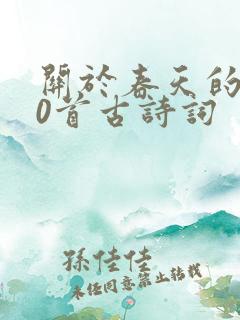 關於春天的
0首古詩詞
孫佳佳
未經同意禁止轉載